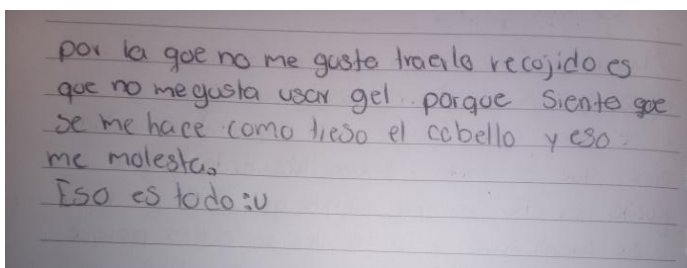 por la que no me gusta traerlo recojido es
que no me gusta usar gel porque siento que
se me hace como tieso el cabello y eso
me molesta.
Eso es todo :u